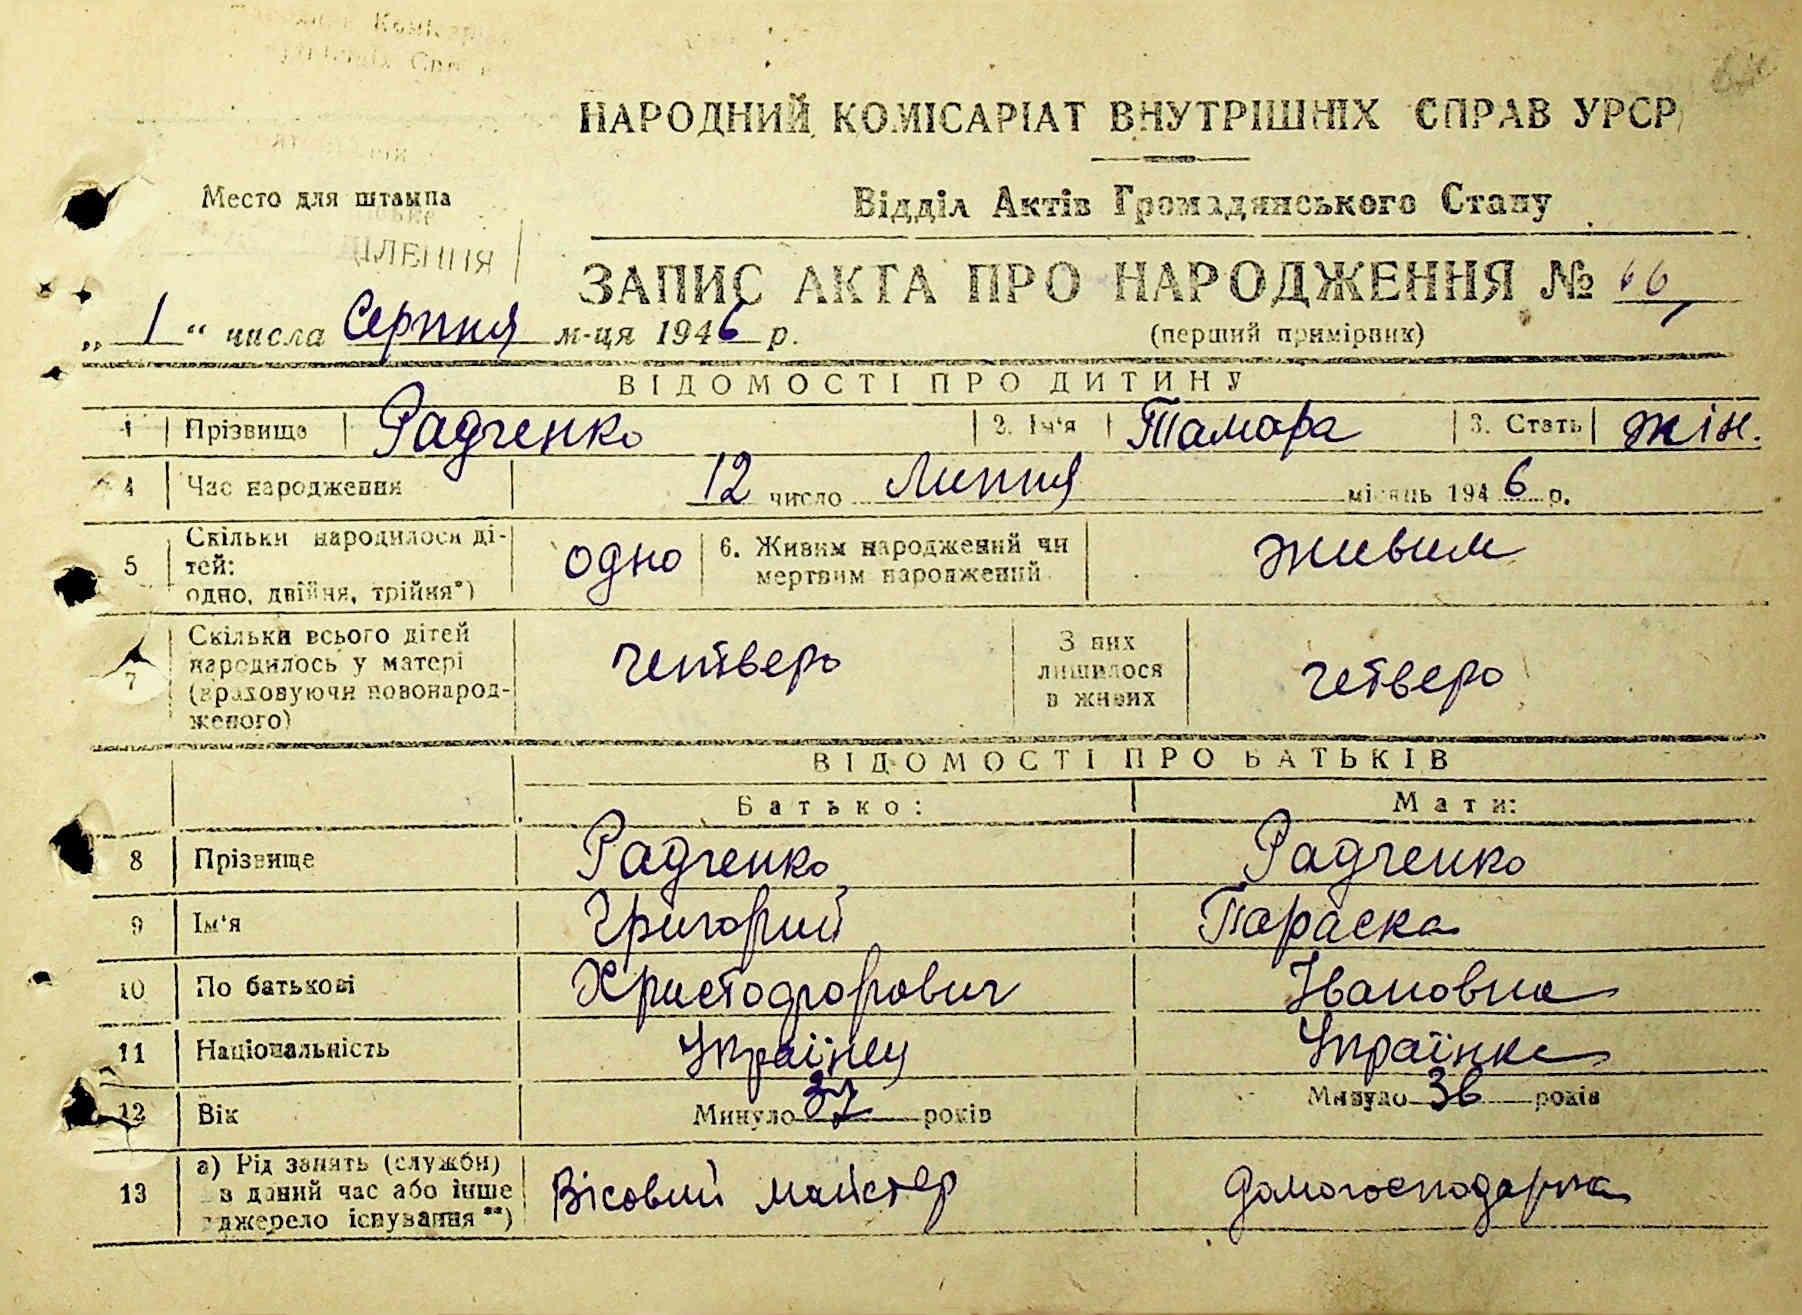 НАРОДНИЙ КОМІСАРІАТ ВНУТРІШНІХ СПРАВ УРСР
Место для штампа
Відділ Актів Громадянського Стану
ДІЛЕННЯ
ЗАПИС АКТА ПРО НАРОДЖЕННЯ № 66
„ 1 “ числа Серпня м-ця 1946 р.
(перший примірник)
ВІДОМОСТІ ПРО ДИТИНУ
1 Прізвище Радченко 2. Ім'я Тамара 3. Стать жін.
4 Час народження 12 число Липня місяць 1946 р.
5 Скільки народилося ді-
тей:
одно, двійня, трійня*) одно 6. Живим народжений чи
мертвим народжений живим
7 Скільки всього дітей
народилось у матері
(враховуючи новонарод-
женого) четверо З них
лишилося
в живих четверо
ВІДОМОСТІ ПРО БАТЬКІВ
Батько: Мати:
8 Прізвище Радченко Радченко
9 Ім'я Григорий Параска
10 По батькові Христофорович Івановна
11 Національність Українец Українка
12 Вік Минуло 37 років Минуло 36 років
13 а) Рід занять (служби)
в даний час або інше
джерело існування**) Вісовий майстер домогосподарка